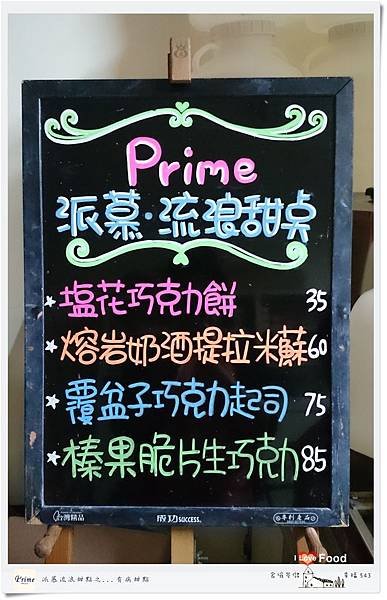 Prime
派慕·流浪甜桌
★塩花巧克力餅 35
★熔岩奶酒提拉米蘇 60
★覆盆子巧克力起司 75
★榛果脆片生巧克力 85
台灣精品 成功 SUCCESS. 專利產品
I Love Food
Prime 派慕流浪甜點之...有病甜點
幸福543